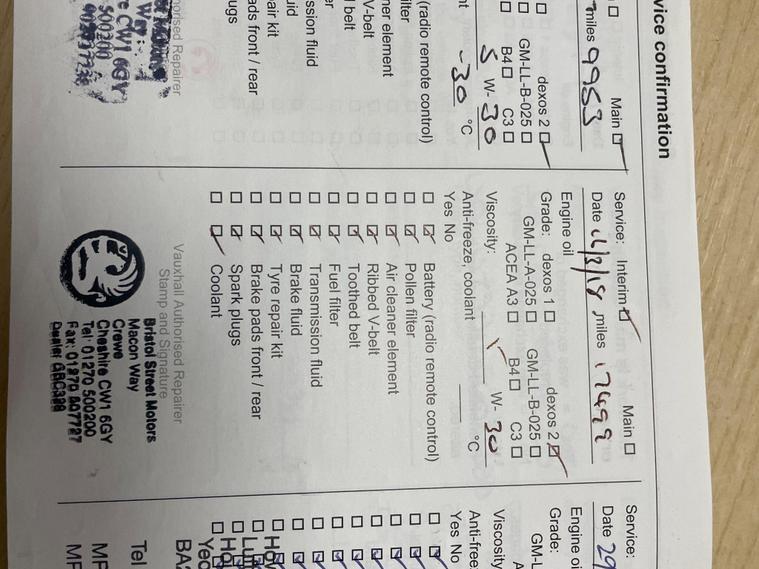 vice confirmation
Main
miles 9953
dexos 2
GM-LL-B-025
B4 C3
5 W- 30
nt -30 °C
(radio remote control)
filter
ner element
V-belt
d belt
er
mission fluid
uid
pair kit
pads front / rear
lugs
horised Repairer
CW1 6GY
500200
Service: Interim Main
Date miles 17499
Engine oil
Grade: dexos 1 dexos 2
GM-LL-A-025 GM-LL-B-025
ACEA A3 B4 C3
Viscosity: W- 30
Anti-freeze, coolant °C
Yes No
Battery (radio remote control)
Pollen filter
Air cleaner element
Ribbed V-belt
Toothed belt
Fuel filter
Transmission fluid
Brake fluid
Tyre repair kit
Brake pads front / rear
Spark plugs
Coolant
Vauxhall Authorised Repairer
Stamp and Signature
Bristol Street Motors
Macon Way
Crewe
Cheshire CW1 6GY
Tel: 01270 500200
Service:
Date 29
Engine oil
Grade:
GM-L
A
Viscosity
Anti-free
Yes No
Tel
MF
MF